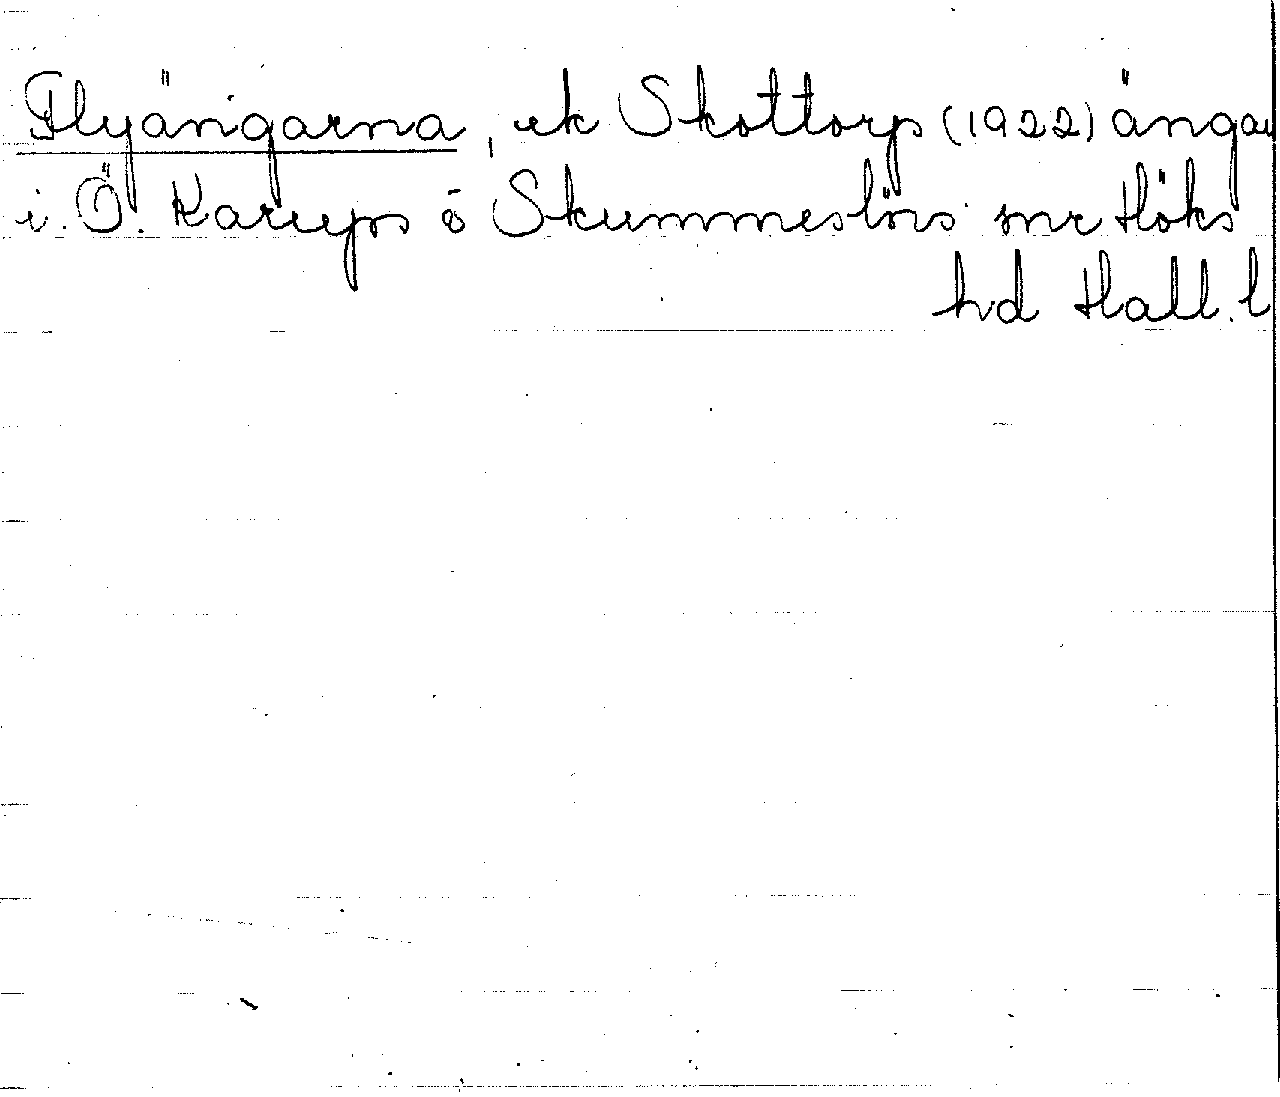 Flyängarna, ek Skottorp (1922) ängar
i Ö. Karups o Skummeslövs snr Höks
hd Hall. l